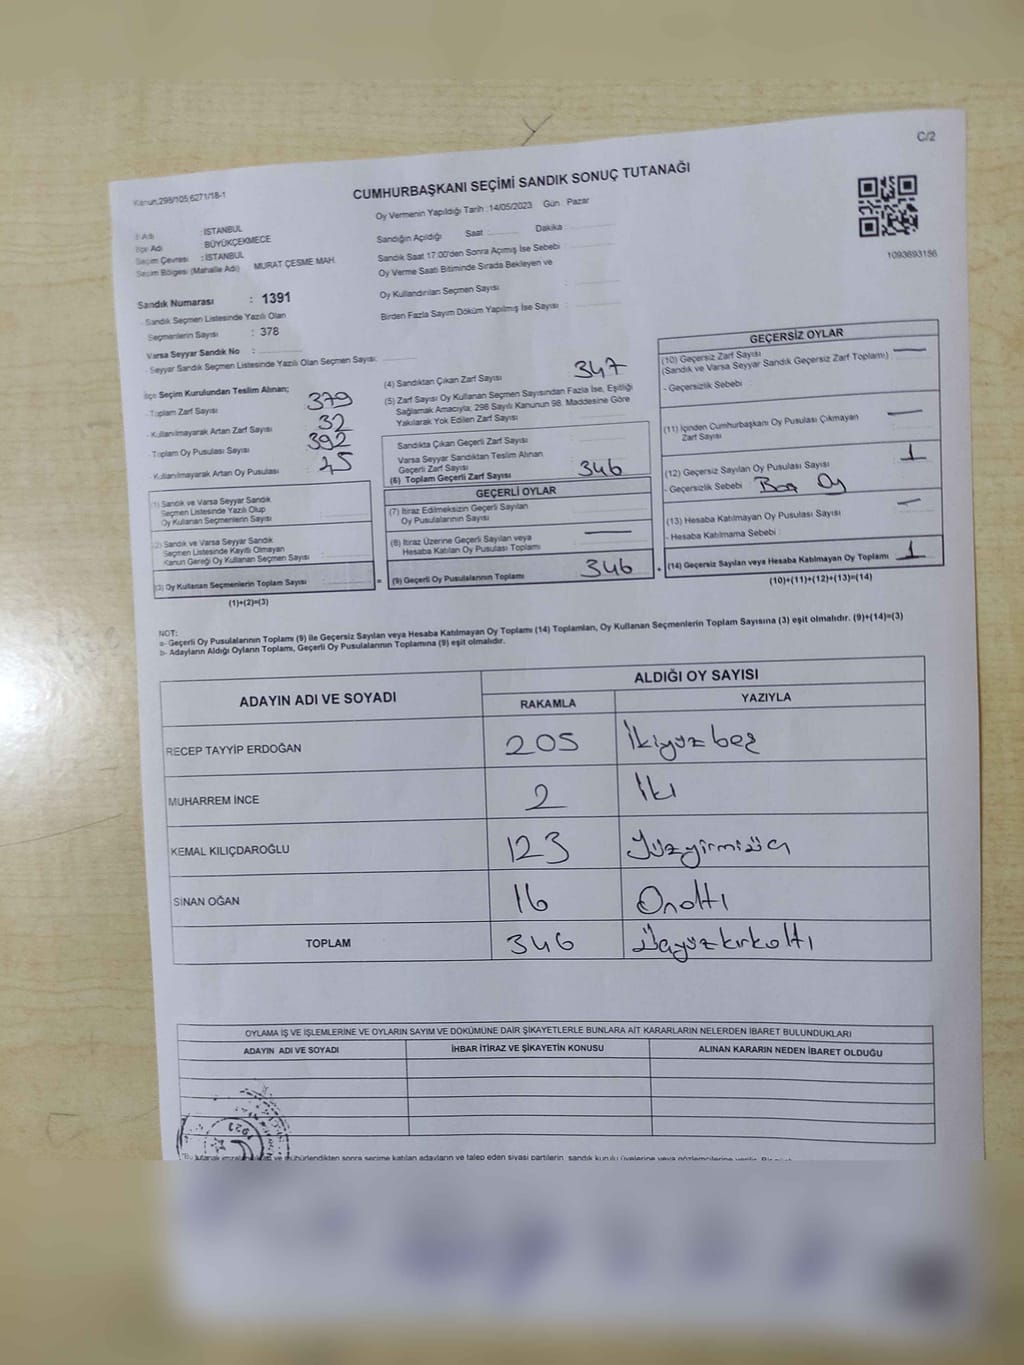 C/2
Kanun.298/105;6271/18-1
CUMHURBAŞKANI SEÇİMİ SANDIK SONUÇ TUTANAĞI
Oy Vermenin Yapıldığı Tarih :14/05/2023 Gün : Pazar
İl Adı : İSTANBUL
İlçe Adı : BÜYÜKÇEKMECE
Seçim Çevresi : İSTANBUL
Seçim Bölgesi (Mahalle Adı) MURAT ÇEŞME MAH.
Sandığın Açıldığı Saat Dakika
Sandık Saat 17.00'den Sonra Açılmış İse Sebebi :
Oy Verme Saati Bitiminde Sırada Bekleyen ve
Oy Kullandırılan Seçmen Sayısı :
Birden Fazla Sayım Döküm Yapılmış İse Sayısı :
1093693156
Sandık Numarası : 1391
- Sandık Seçmen Listesinde Yazılı Olan
Seçmenlerin Sayısı : 378
Varsa Seyyar Sandık No :
- Seyyar Sandık Seçmen Listesinde Yazılı Olan Seçmen Sayısı:
İlçe Seçim Kurulundan Teslim Alınan;
- Toplam Zarf Sayısı 379
- Kullanılmayarak Artan Zarf Sayısı 32
- Toplam Oy Pusulası Sayısı 392
- Kullanılmayarak Artan Oy Pusulası : 45
(1) Sandık ve Varsa Seyyar Sandık
Seçmen Listesinde Yazılı Olup
Oy Kullanan Seçmenlerin Sayısı :
(2) Sandık ve Varsa Seyyar Sandık
Seçmen Listesinde Kayıtlı Olmayan
Kanun Gereği Oy Kullanan Seçmen Sayısı :
(3) Oy Kullanan Seçmenlerin Toplam Sayısı :
(1)+(2)=(3)
(4) Sandıktan Çıkan Zarf Sayısı : 347
(5) Zarf Sayısı Oy Kullanan Seçmen Sayısından Fazla İse, Eşitliği
Sağlamak Amacıyla; 298 Sayılı Kanunun 98. Maddesine Göre
Yakılarak Yok Edilen Zarf Sayısı :
Sandıkta Çıkan Geçerli Zarf Sayısı :
Varsa Seyyar Sandıktan Teslim Alınan
Geçerli Zarf Sayısı :
(6) Toplam Geçerli Zarf Sayısı : 346
GEÇERLİ OYLAR
(7) İtiraz Edilmeksizin Geçerli Sayılan
Oy Pusulalarının Sayısı :
(8) İtiraz Üzerine Geçerli Sayılan veya
Hesaba Katılan Oy Pusulası Toplamı : —
= (9) Geçerli Oy Pusulalarının Toplamı : 346
GEÇERSİZ OYLAR
(10) Geçersiz Zarf Sayısı : —
(Sandık ve Varsa Seyyar Sandık Geçersiz Zarf Toplamı)
- Geçersizlik Sebebi :
(11) İçinden Cumhurbaşkanı Oy Pusulası Çıkmayan
Zarf Sayısı : —
(12) Geçersiz Sayılan Oy Pusulası Sayısı : 1
- Geçersizlik Sebebi : Boş Oy
(13) Hesaba Katılmayan Oy Pusulası Sayısı : —
- Hesaba Katılmama Sebebi :
+ (14) Geçersiz Sayılan veya Hesaba Katılmayan Oy Toplamı : 1
(10)+(11)+(12)+(13)=(14)
NOT:
a- Geçerli Oy Pusulalarının Toplamı (9) ile Geçersiz Sayılan veya Hesaba Katılmayan Oy Toplamı (14) Toplamları, Oy Kullanan Seçmenlerin Toplam Sayısına (3) eşit olmalıdır. (9)+(14)=(3)
b- Adayların Aldığı Oyların Toplamı, Geçerli Oy Pusulalarının Toplamına (9) eşit olmalıdır.
ADAYIN ADI VE SOYADI ALDIĞI OY SAYISI
RAKAMLA YAZIYLA
RECEP TAYYİP ERDOĞAN 205 İkiyüzbeş
MUHARREM İNCE 2 İki
KEMAL KILIÇDAROĞLU 123 Yüzyirmiüç
SİNAN OĞAN 16 Onaltı
TOPLAM 346 Üçyüzkırkaltı
OYLAMA İŞ VE İŞLEMLERİNE VE OYLARIN SAYIM VE DÖKÜMÜNE DAİR ŞİKAYETLERLE BUNLARA AİT KARARLARIN NELERDEN İBARET BULUNDUKLARI
ADAYIN ADI VE SOYADI İHBAR İTİRAZ VE ŞİKAYETİN KONUSU ALINAN KARARIN NEDEN İBARET OLDUĞU
mühürlendikten sonra seçime katılan adayların ve talep eden siyasi partilerin, sandık kurulu üyelerine veya gözlemcilerine verilir.